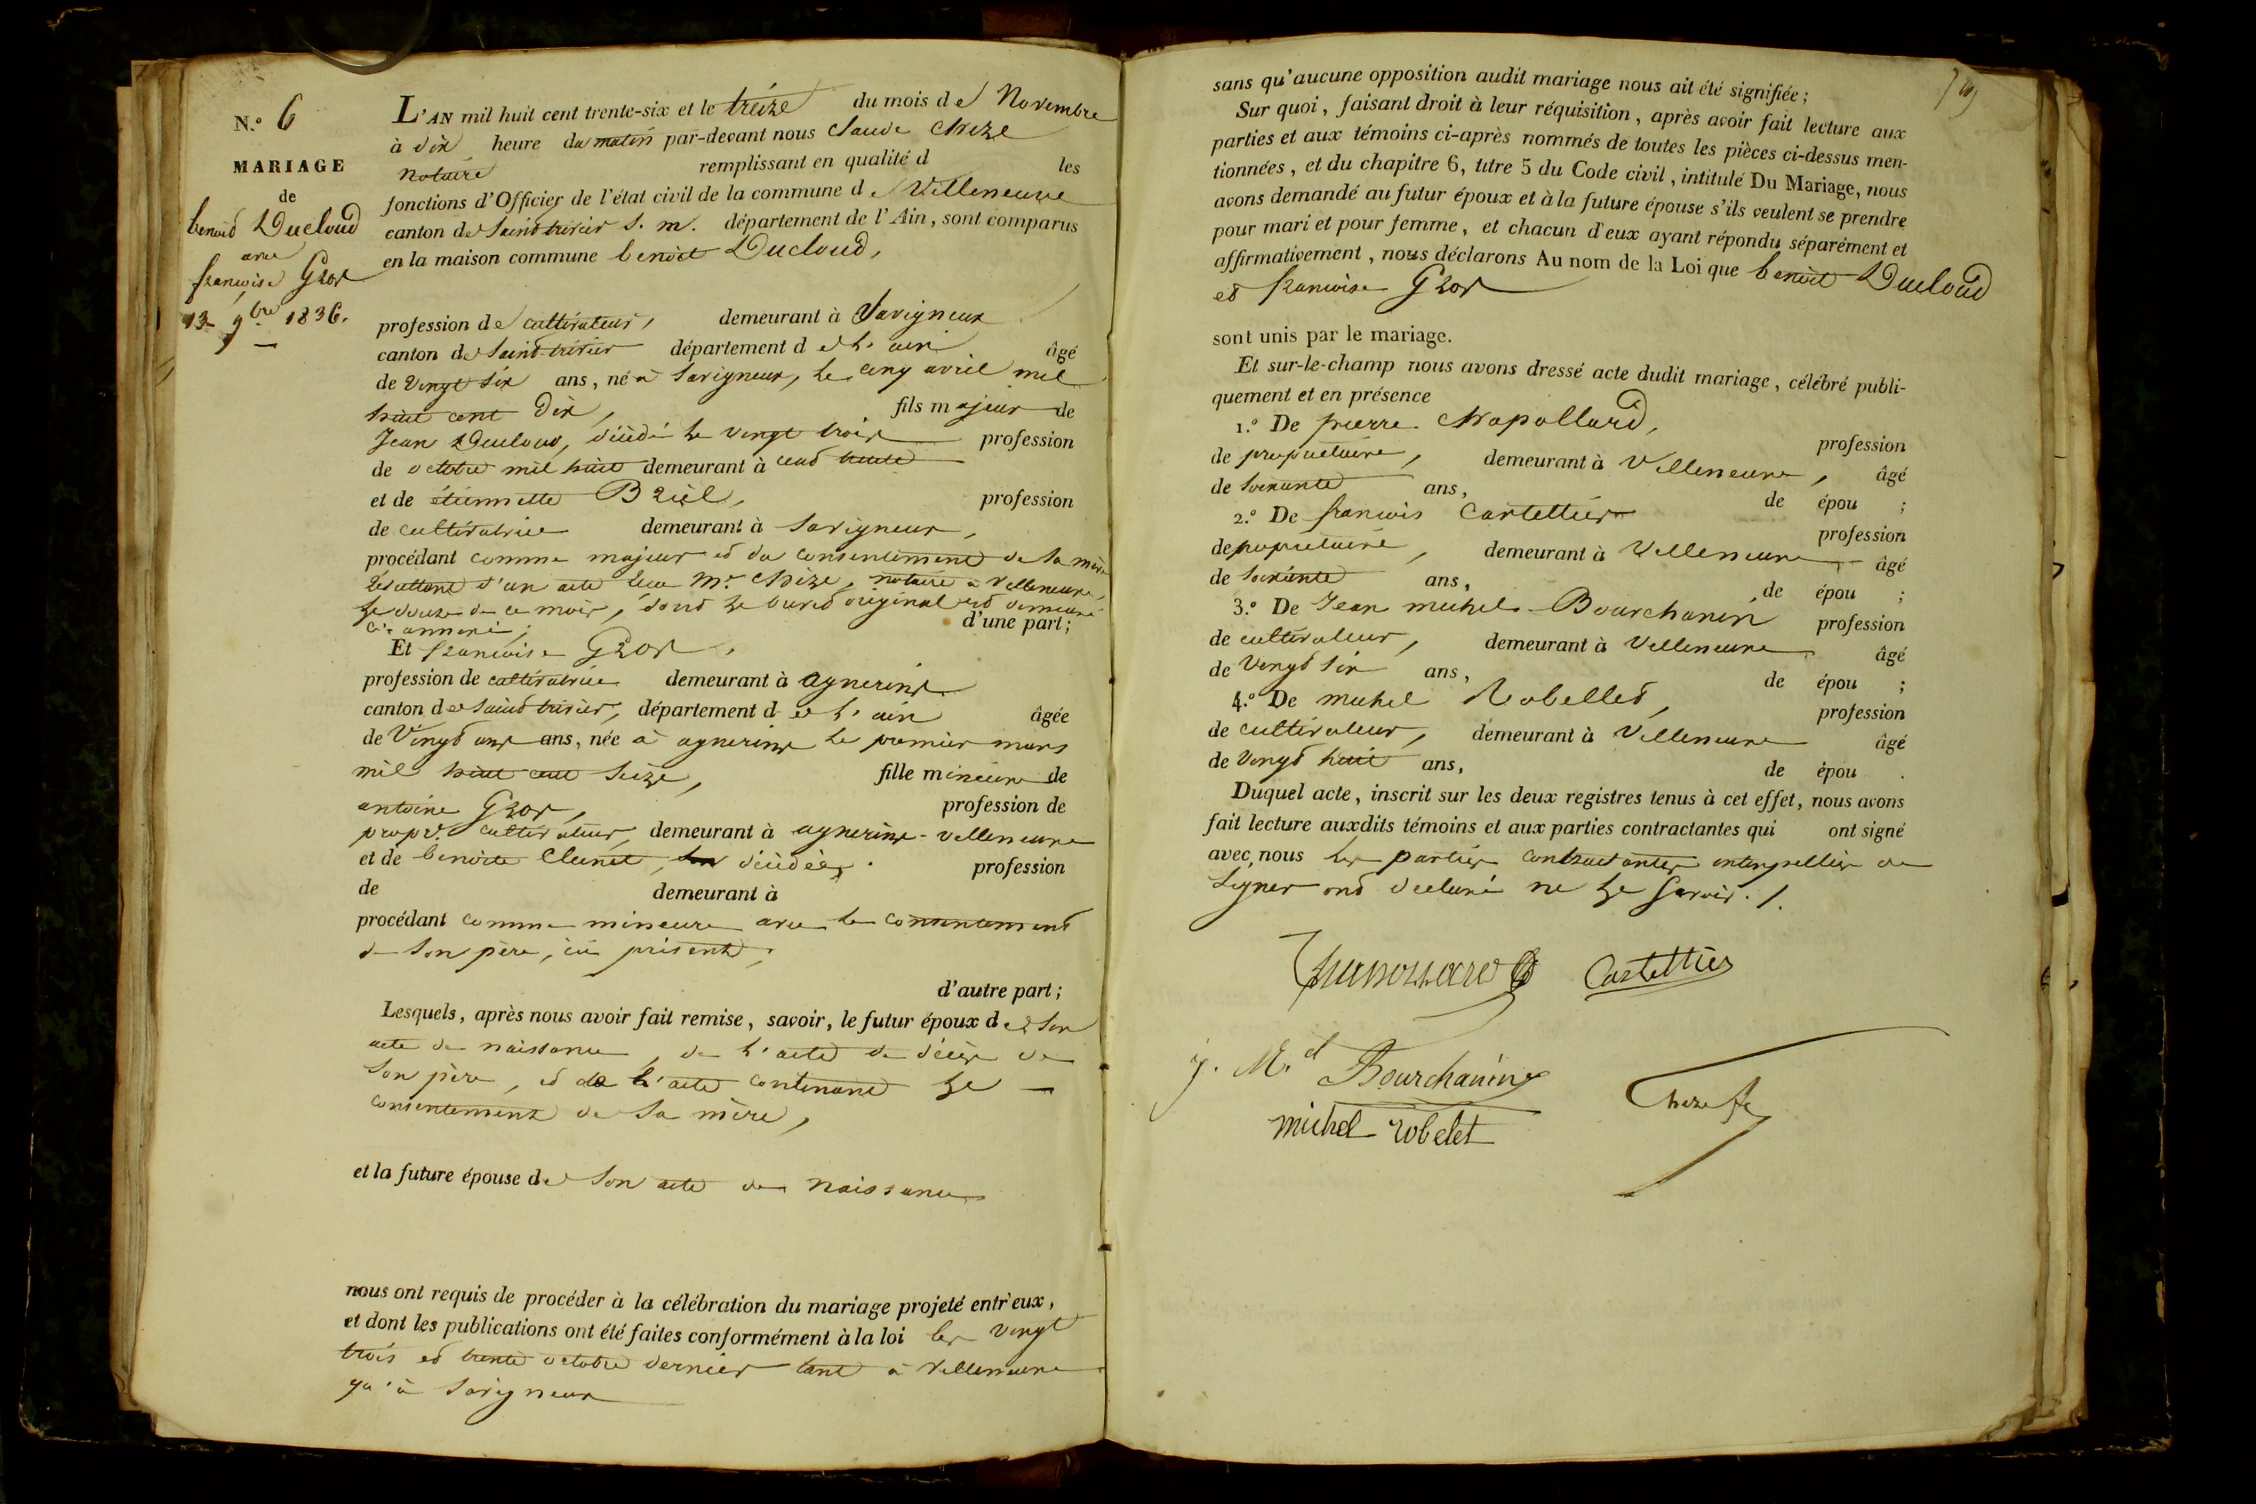 N.o 6
MARIAGE
de
benoid Ducloud
avec
francoise Gros
13. 9bre 1836.
L'AN mil huit cent trente-six et le treize du mois de Novembre
à dix heure du matin par-devant nous Claude Chize
notaire remplissant en qualité d les
fonctions d'Officier de l'état civil de la commune de Villeneuve
canton de Saint trivier s. m. département de l'Ain, sont comparus
en la maison commune benoit Ducloud,
profession de cultivateur, demeurant à Savigneux
canton de Saint trivier département de l'ain âgé
de vingt six ans, né à Savigneux, le cinq avril mil
huit cent dix, fils majeur de
Jean Ducloud, décédé le vingt trois profession
de octobre mil huit demeurant à cent trente
et de étiennette Briel, profession
de cultivatrice demeurant à Savigneux,
procédant comme majeur et du consentement de sa mère
résultant d'un acte reçu Mr Chize, notaire à villeneuve,
le douze de ce mois, dont le brevet original est demeuré
ci-annexé; d'une part;
Et francoise Gros,
profession de cultivatrice demeurant à agnerins
canton de Saint trivier, département de l'ain âgée
de Vingt ans ans, née à agnerins le premier mars
mil huit cent seize, fille mineure de
antoine Gros, profession de
propre. cultivateur, demeurant à agnerins-villeneuve
et de benoite Clunet, décédée, profession
de demeurant à
procédant comme mineure avec le consentement
de son père, ici présent,
d'autre part;
Lesquels, après nous avoir fait remise, savoir, le futur époux de son
acte de naissance, de l'acte de décès de
son père, et de l'acte contenant le —
consentement de sa mère,
et la future épouse de son acte de naissance
nous ont requis de procéder à la célébration du mariage projeté entr'eux,
et dont les publications ont été faites conformément à la loi les vingt
trois et trente octobre dernier tant à Villeneuve
qu'à Savigneux
sans qu'aucune opposition audit mariage nous ait été signifiée;
Sur quoi, faisant droit à leur réquisition, après avoir fait lecture aux
parties et aux témoins ci-après nommés de toutes les pièces ci-dessus men-
tionnées, et du chapitre 6, titre 5 du Code civil, intitulé Du Mariage, nous
avons demandé au futur époux et à la future épouse s'ils veulent se prendre
pour mari et pour femme, et chacun d'eux ayant répondu séparément et
affirmativement, nous déclarons Au nom de la Loi que benoit Ducloud
et francoise Gros
sont unis par le mariage.
Et sur-le-champ nous avons dressé acte dudit mariage, célébré publi-
quement et en présence
1.o De pierre Chapollard, profession
de propriétaire, demeurant à Villeneuve, âgé
de soixante ans, de épou ;
2.o De francois Cartettier profession
de propriétaire, demeurant à Villeneuve âgé
de soixante ans, de épou ;
3.o De Jean michel Bourchanin profession
de cultivateur, demeurant à Villeneuve âgé
de Vingt six ans, de épou ;
4.o De michel Robelled, profession
de cultivateur, demeurant à Villeneuve âgé
de Vingt huit ans, de épou .
Duquel acte, inscrit sur les deux registres tenus à cet effet, nous avons
fait lecture auxdits témoins et aux parties contractantes qui ont signé
avec nous les parties contractantes interpellées de
signer ont déclaré ne le savoir. /.
Cartettier
j. M.el Bourchanin
Chize
michel robelet